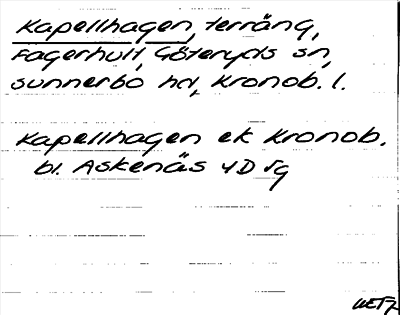 Kapellhagen, terräng,
Fagerhult, Göteryds sn,
Sunnerbo hd, Kronob. l.
Kapellhagen ek Kronob.
bl. Askenäs 4D